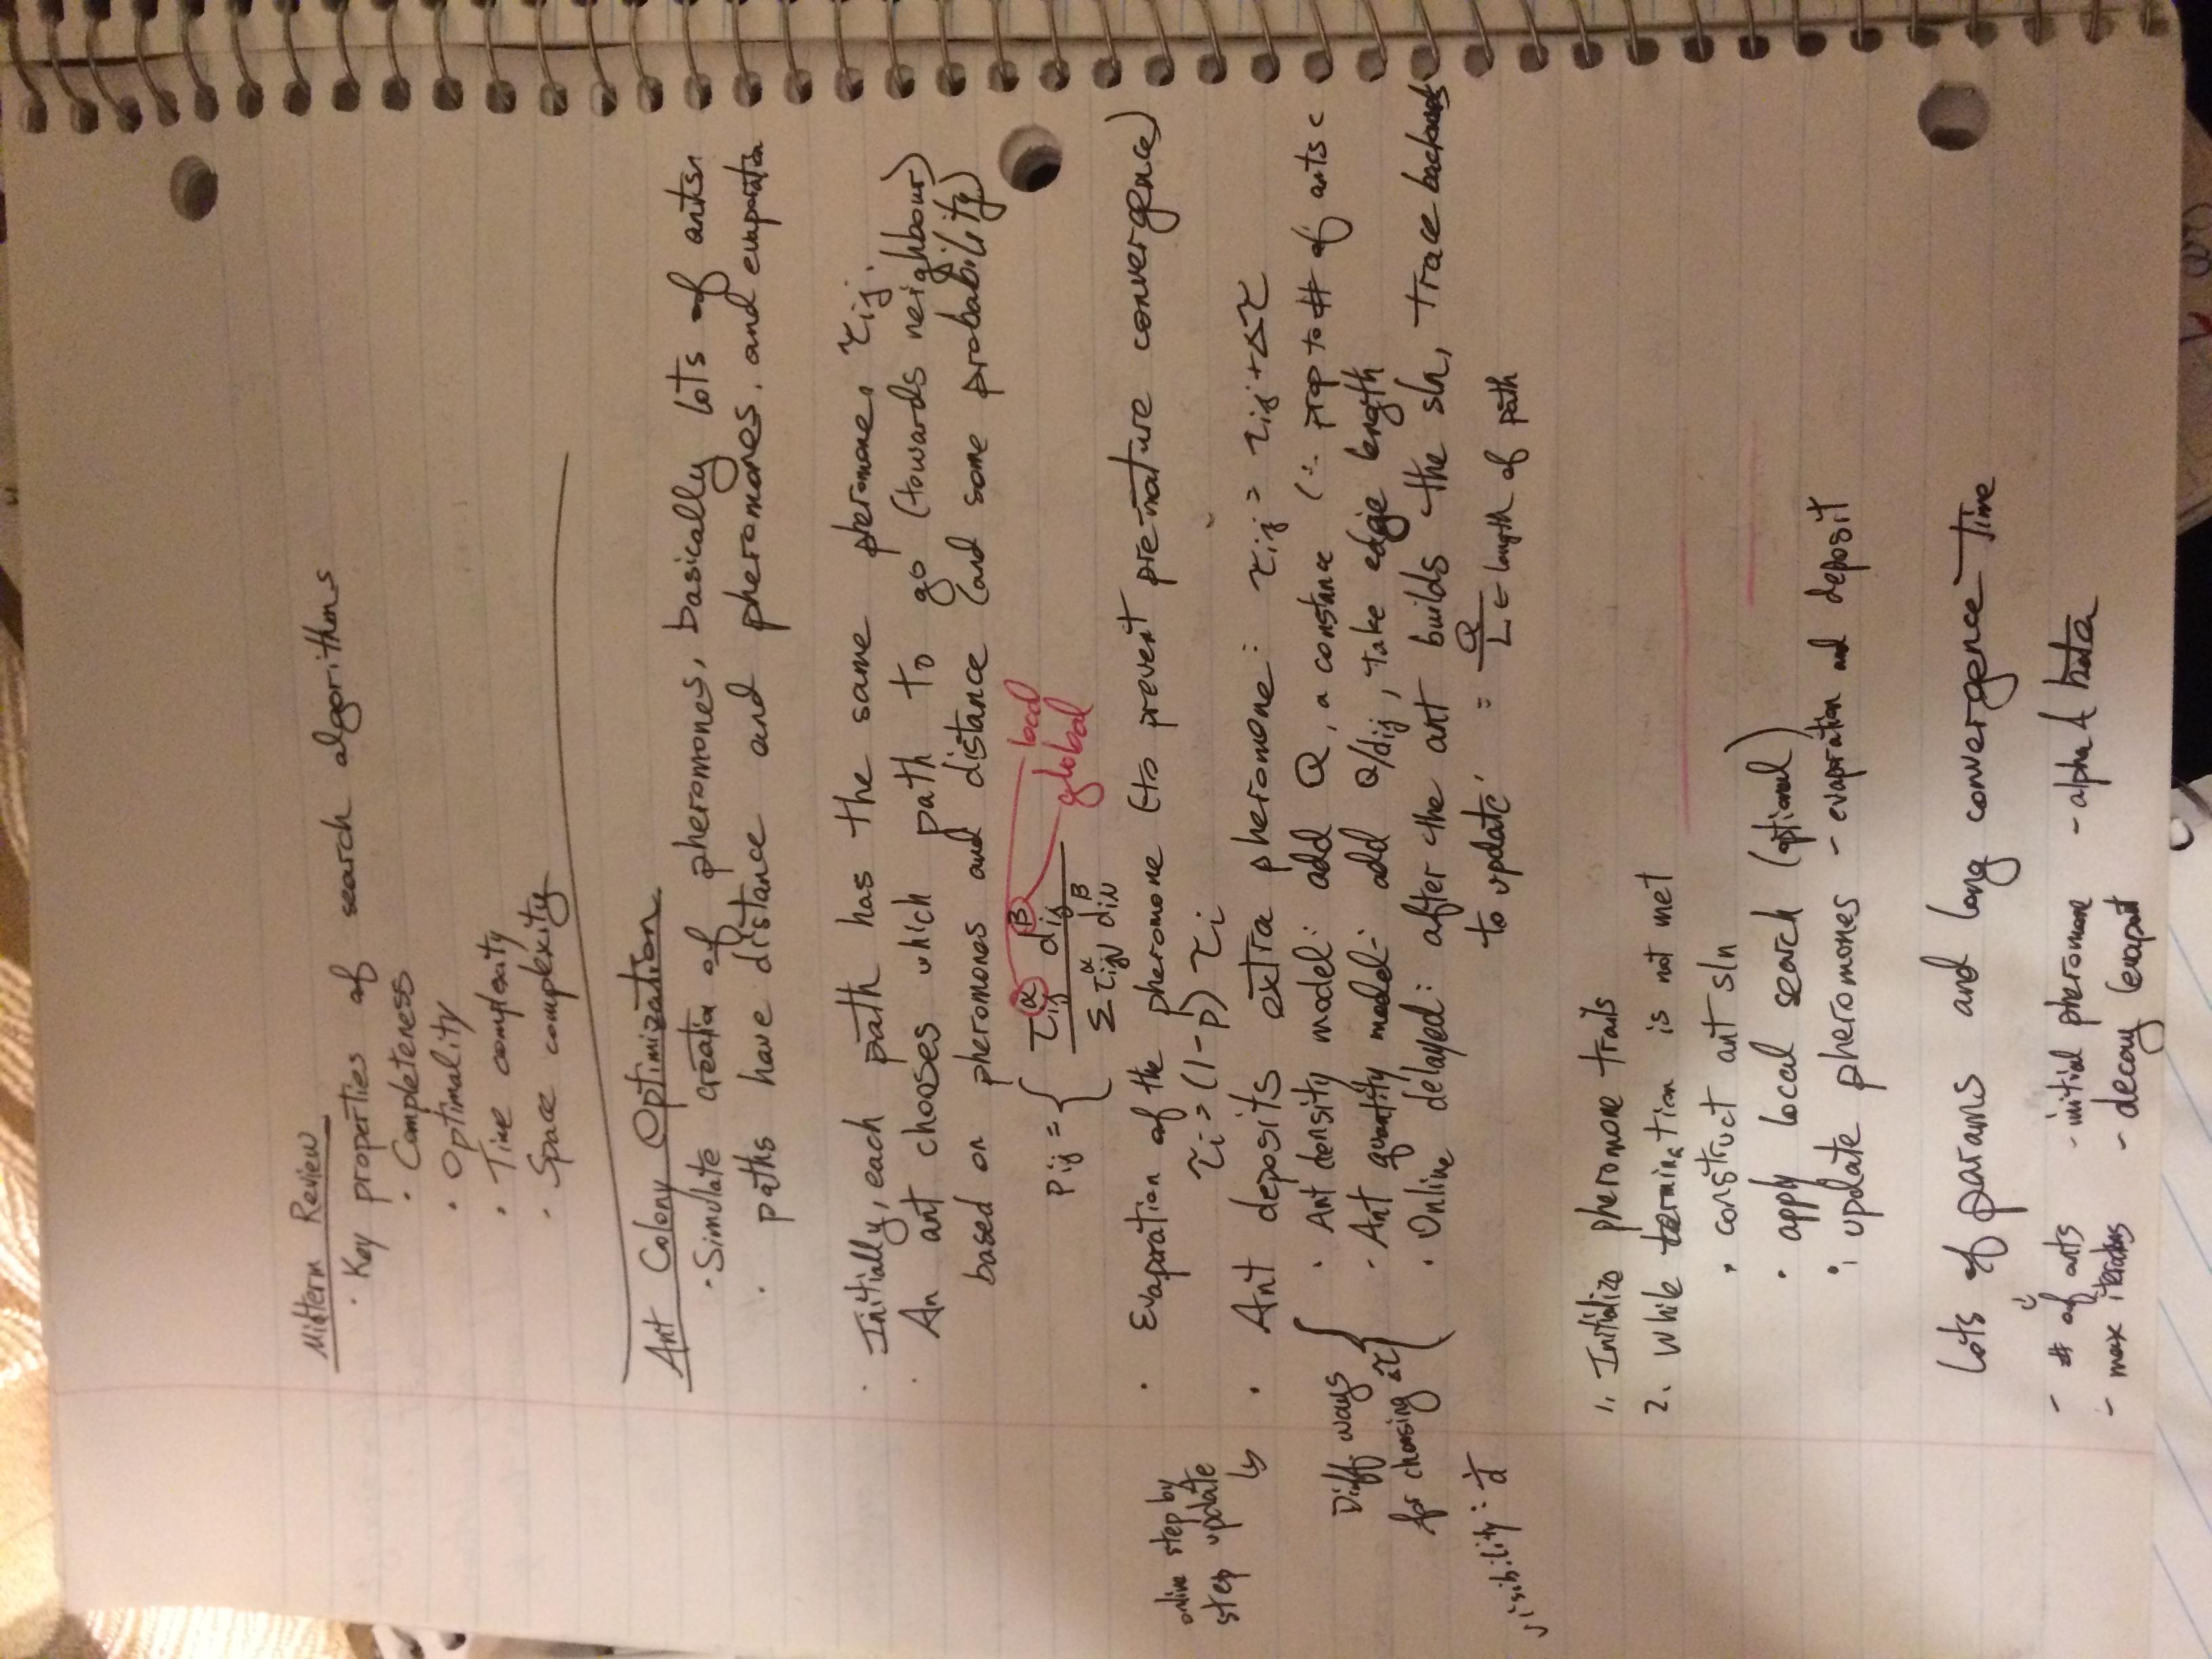 Midterm Review
· Key properties of search algorithms
· Completeness
· Optimality
· Time complexity
· Space complexity
Ant Colony Optimization
· Simulate creation of pheromones, basically lots of ants
· paths have distance and pheromones, and evaporation
· Initially, each path has the same pheromone τij.
· An ant chooses which path to go (towards neighbour)
based on pheromones and distance (and some probability)
Pij = { τij^α dij^β / Σ τiN^α diN^β
local
global
· Evaporation of the pheromone (to prevent pre-mature convergence)
τi = (1-p) τi
online step by
step update
· Ant deposits extra pheromone: τij = τij + Δτ
Diff. ways
for choosing Δτ
· Ant density model: add Q, a constance (∴ prop to # of ants
· Ant quantity model: add Q/dij, take edge length
· Online delayed: after the ant builds the sln, trace backwards
to update = Q/L ← length of path
visibility: 1/d
1. Initialize pheromone trails
2. While termination is not met
· construct ant sln
· apply local search (optional)
· update pheromones - evaporation and deposit
lots of params and long convergence time
- # of ants - initial pheromone - alpha & beta
- max iterations - decay (evapor